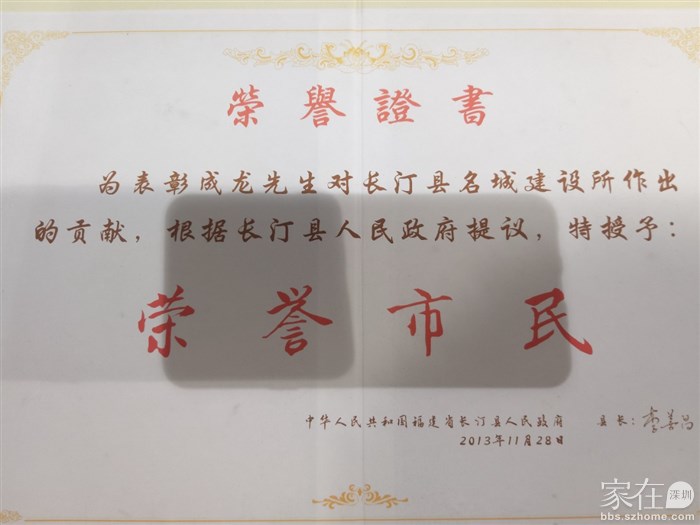 榮譽證書
为表彰成龙先生对长汀县名城建设所作出
的贡献，根据长汀县人民政府提议，特授予：
荣誉市民
中华人民共和国福建省长汀县人民政府 县长：李善昌
2013年11月28日
家在深圳
bbs.szhome.com